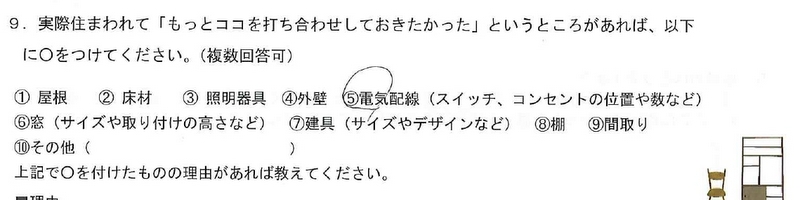 ９．実際住まわれて「もっとココを打ち合わせしておきたかった」というところがあれば、以下
に〇をつけてください。（複数回答可）
① 屋根　② 床材　③ 照明器具　④外壁　⑤電気配線（スイッチ、コンセントの位置や数など）
⑥窓（サイズや取り付けの高さなど）　⑦建具（サイズやデザインなど）　⑧棚　⑨間取り
⑩その他（　　　　　　　　　　　　　）
上記で〇を付けたものの理由があれば教えてください。
■理由